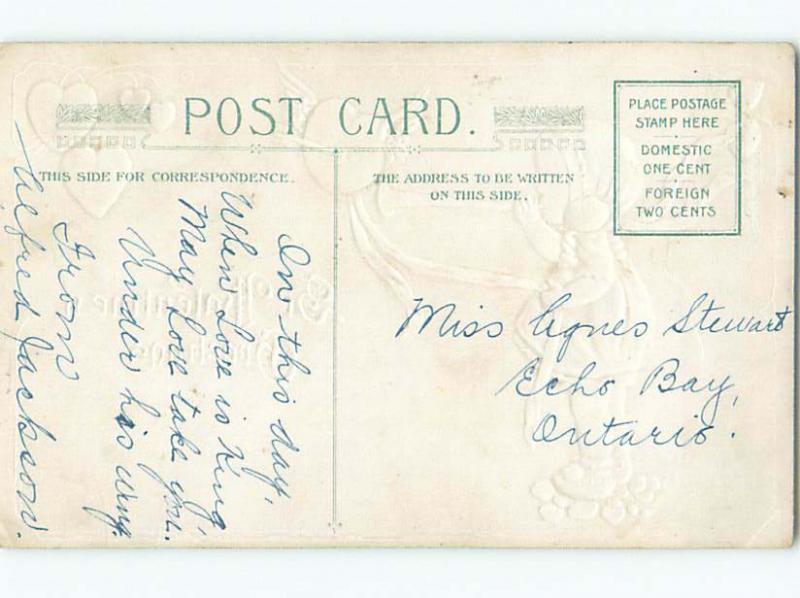 POST CARD.
THIS SIDE FOR CORRESPONDENCE.
THE ADDRESS TO BE WRITTEN
ON THIS SIDE.
PLACE POSTAGE
STAMP HERE
DOMESTIC
ONE CENT
FOREIGN
TWO CENTS
On this day,
When Love is King,
May Love take you.
Under his wing.
From
Alfred Jackson.
Miss Agnes Stewart
Echo Bay,
Ontario.